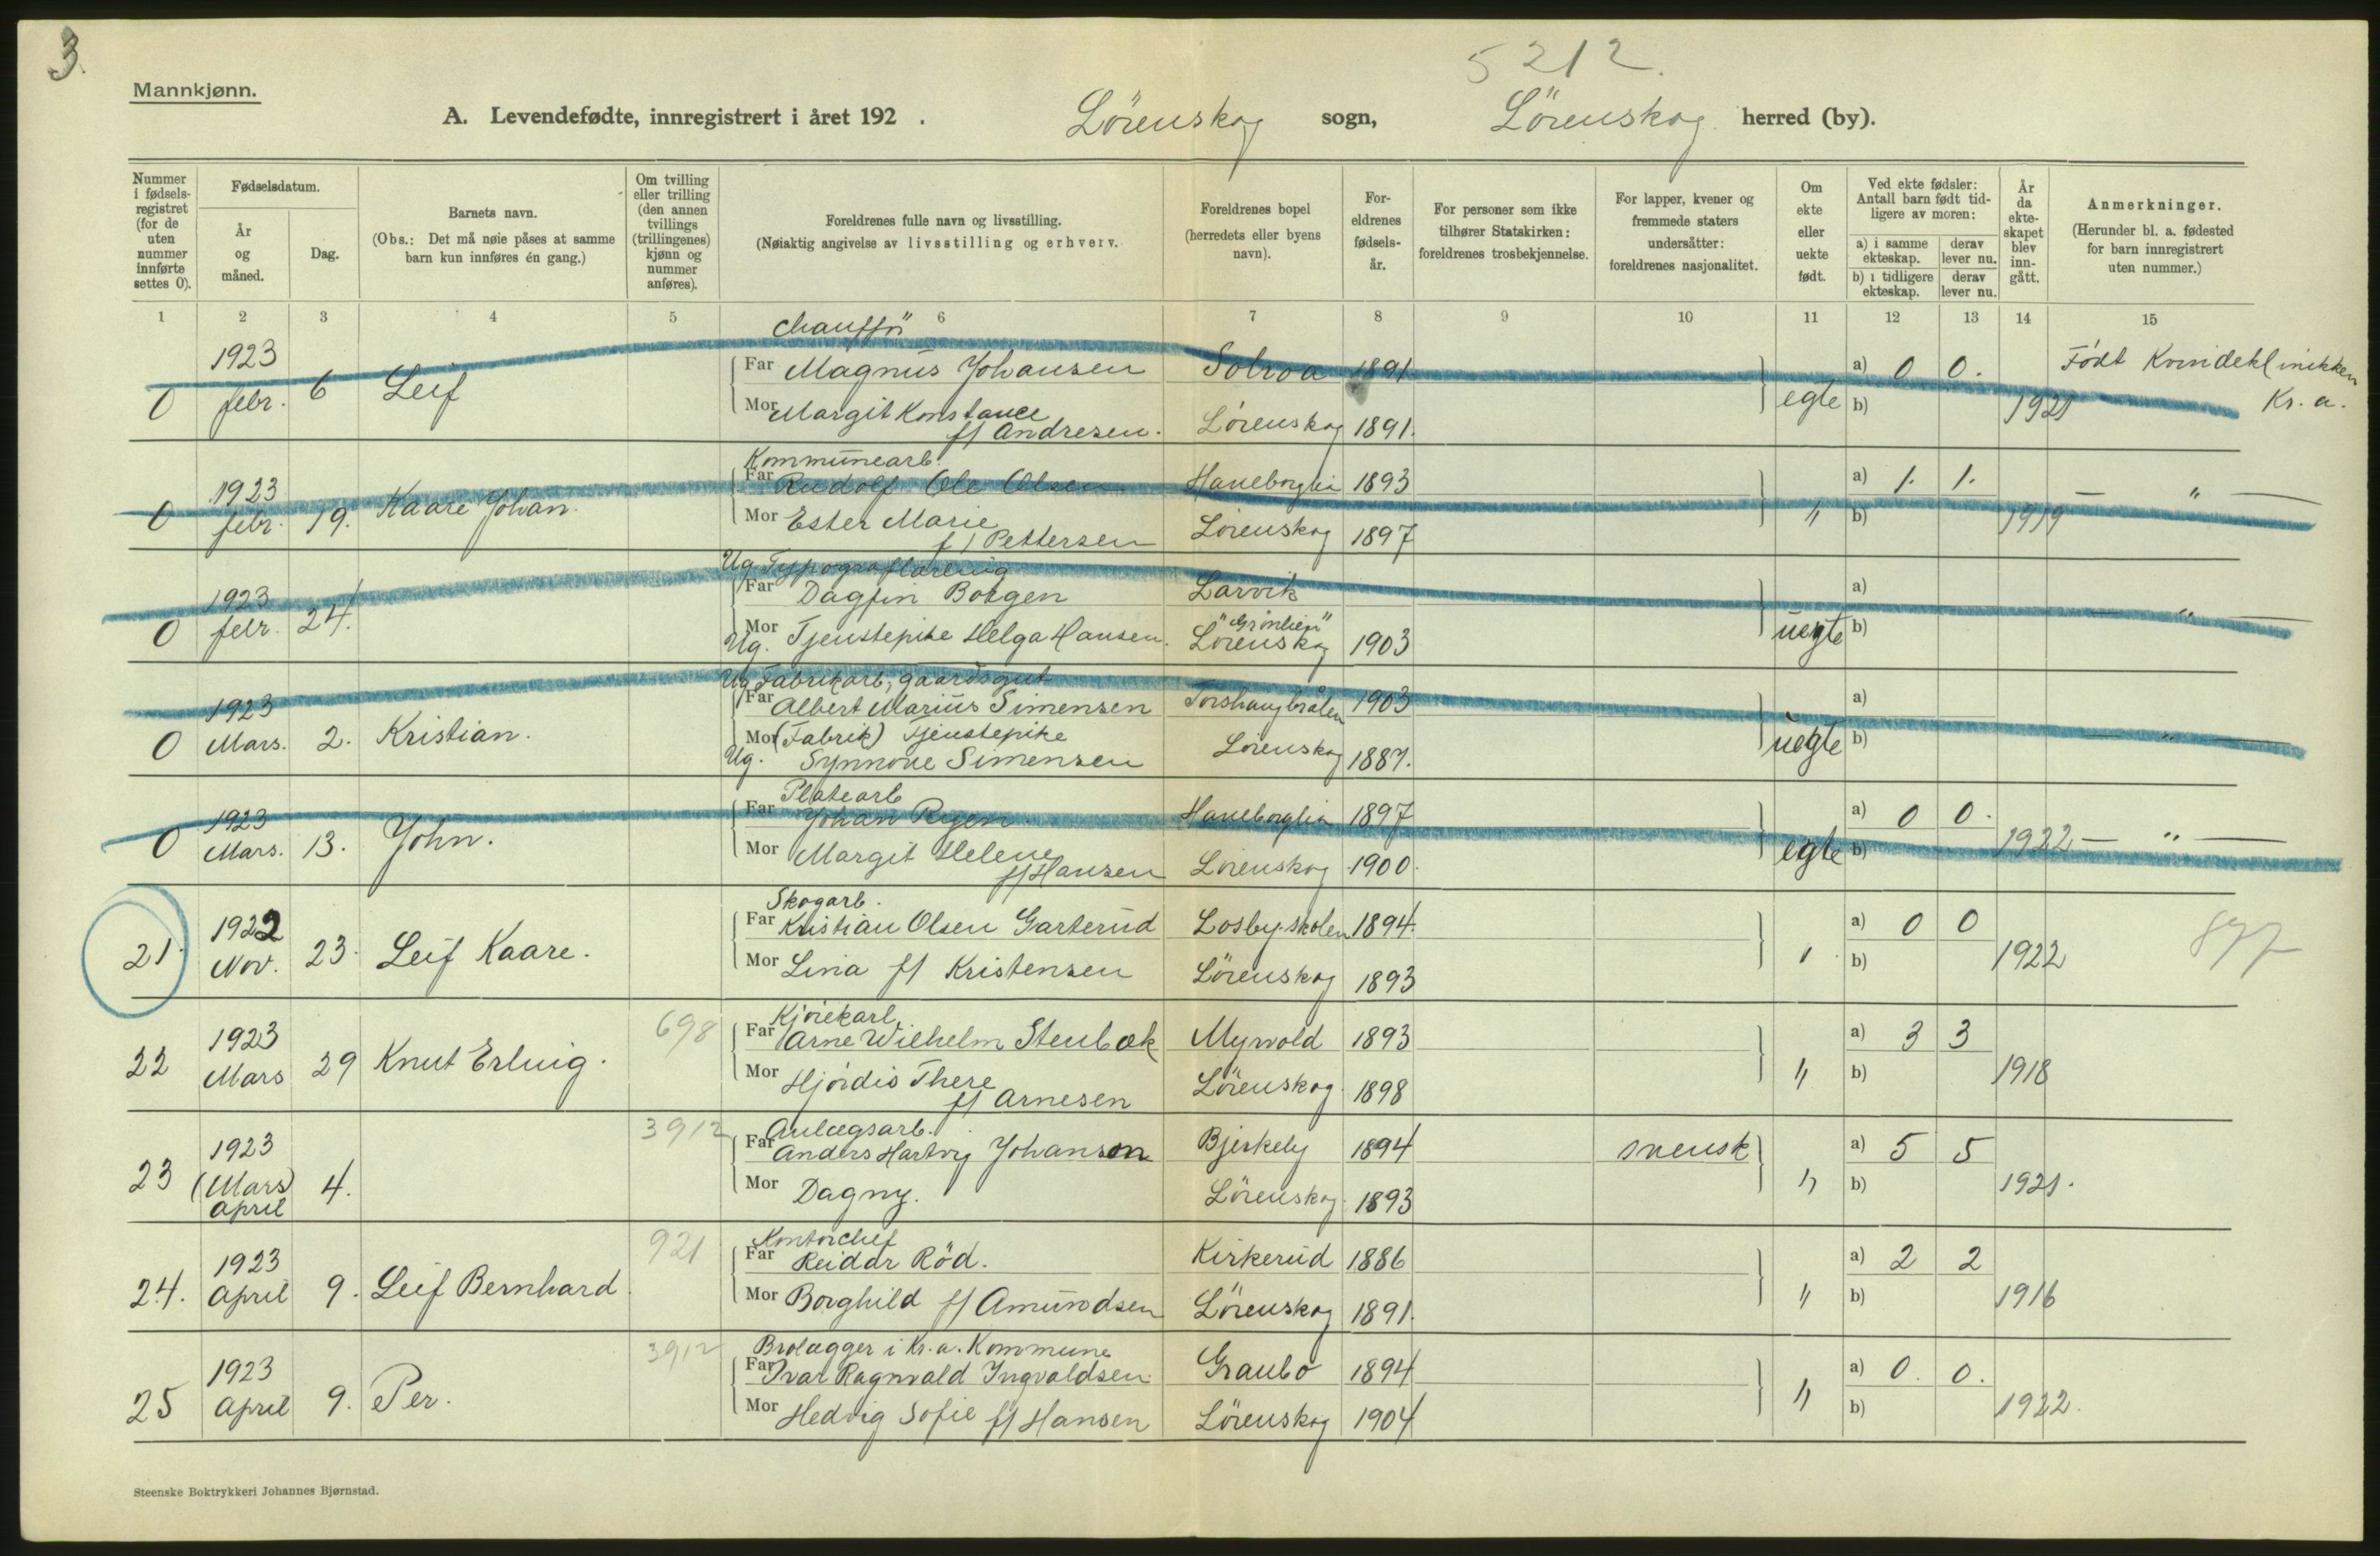 3.
5212.
Mannkjønn.
A. Levendefødte, innregistrert i året 192 . Lörenskog sogn, Lörenskog herred (by).
Nummer i fødsels-registret (for de uten nummer innførte settes 0).
Fødselsdatum.
År og måned.
Dag.
Barnets navn.
(Obs.: Det må nøie påses at samme barn kun innføres én gang.)
Om tvilling eller trilling (den annen tvillings (trillingenes) kjønn og nummer anføres).
Foreldrenes fulle navn og livsstilling.
(Nøiaktig angivelse av livsstilling og erhverv.
Foreldrenes bopel (herredets eller byens navn).
For-eldrenes fødsels-år.
For personer som ikke tilhører Statskirken: foreldrenes trosbekjennelse.
For lapper, kvener og fremmede staters undersåtter: foreldrenes nasjonalitet.
Om ekte eller uekte født.
Ved ekte fødsler: Antall barn født tid-ligere av moren:
a) i samme ekteskap.
derav lever nu.
b) i tidligere ekteskap.
derav lever nu.
År da ekte-skapet blev inn-gått.
Anmerkninger.
(Herunder bl. a. fødested for barn innregistrert uten nummer.)
1 2 3 4 5 6 7 8 9 10 11 12 13 14 15
chaufför
1923
Far Magnus Johansen Solroa 1891 a) 0 0. Födt Kvindeklinikken
0 febr. 6 Leif
Mor Margit Konstance egte b) 1921 Kr. a.
f/ Andresen. Lörenskog 1891.
Kommunearb.
1923 Far Rudolf Ole Olsen Haneborglia 1893 a) 1. 1. — " —
0 febr. 19. Kaare Johan.
Mor Ester Marie " b) 1919
f/ Pettersen Lörenskog 1897
Ug. Typograflærling
1923 Far Dagfin Borgen Larvik a)
0 febr. 24. — " —
"Grönlien"
Mor Ug. Tjenstepike Helga Hansen. Lörenskog 1903 uegte b)
Ug. Fabrikarb, gaardsgut
1923 Far Albert Marius Simensen Torshaugbråten 1903 a)
0 Mars. 2. Kristian.
Mor (Fabrik) Tjenstepike uegte b) — " —
Ug. Synnöve Simensen Lörenskog 1887.
Platearb
1923 Far Johan Ryen. Haneborglia 1897 a) 0 0.
0 Mars. 13. John. 1922 — " —
Mor Margit Helene egte b)
f/ Hansen Lörenskog 1900.
Skogarb.
1922 Far Kristian Olsen Garterud Losby skolen 1894. a) 0 0
21. Nov. 23. Leif Kaare. 877
Mor Lina f/ Kristensen Lörenskog 1893 " b) 1922
Kjörekarl
1923 698 Far Arne Wilhelm Stenbæk Myrvold 1893 a) 3 3
22 Mars 29 Knut Erling.
Mor Hjördis There " b) 1918
f/ Arnesen Lörenskog. 1898
Anlægsarb.
1923 3912 Far Anders Hartvig Johanson Bjerkely 1894 svensk a) 5 5
23 (Mars) 4.
April Mor Dagny. Lörenskog. 1893 " b) 1921.
Kontorchef
1923 921 Far Reidar Röd. Kirkerud 1886 a) 2 2
24. April 9. Leif Bernhard.
Mor Borghild f/ Amundsen Lörenskog 1891. " b) 1916
Brolægger i Kr. a. Kommune
1923 3912 Far Ivar Ragnvald Ingvaldsen. Graubo 1894 a) 0. 0.
25 April 9. Per.
Mor Hedvig Sofie f/ Hansen Lörenskog 1904 " b) 1922.
Steenske Boktrykkeri Johannes Bjørnstad.